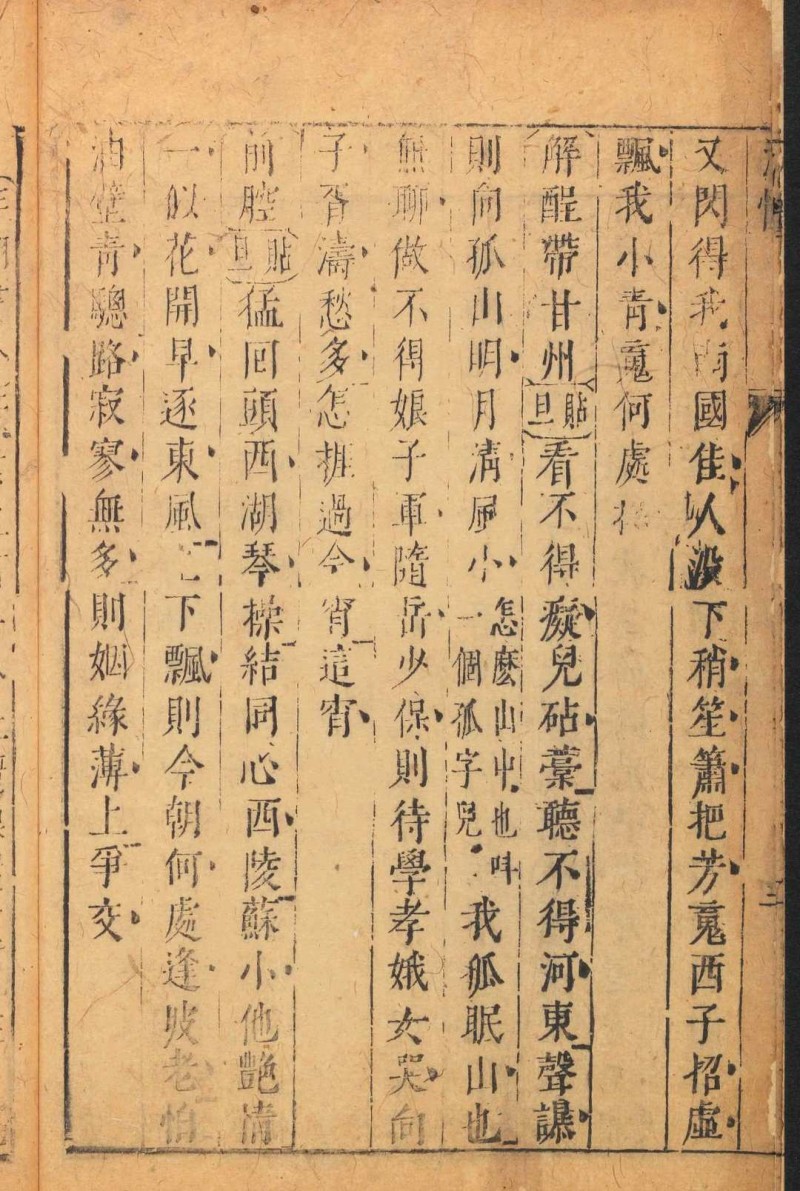 又閃得我南國佳人沒下稍笙簫把芳䰟西子招虛
飄我小青䰟何處
解酲帶甘州貼旦看不得癡兒砧藁聽不得河東聲譟
則向孤山明月淸風小怎麼山中也呌一個孤字兒我孤眠山也
無聊做不得娘子軍隨岳少保則待學孝娥女哭向
子胥濤愁多怎捱過今宵這宵
前腔貼旦猛回頭西湖琴操結同心西陵蘇小他艷情
一似花開早逐東風下飄則今朝何處逢坡老怕
油壁青驄路寂寥無多則姻緣薄上爭交
三